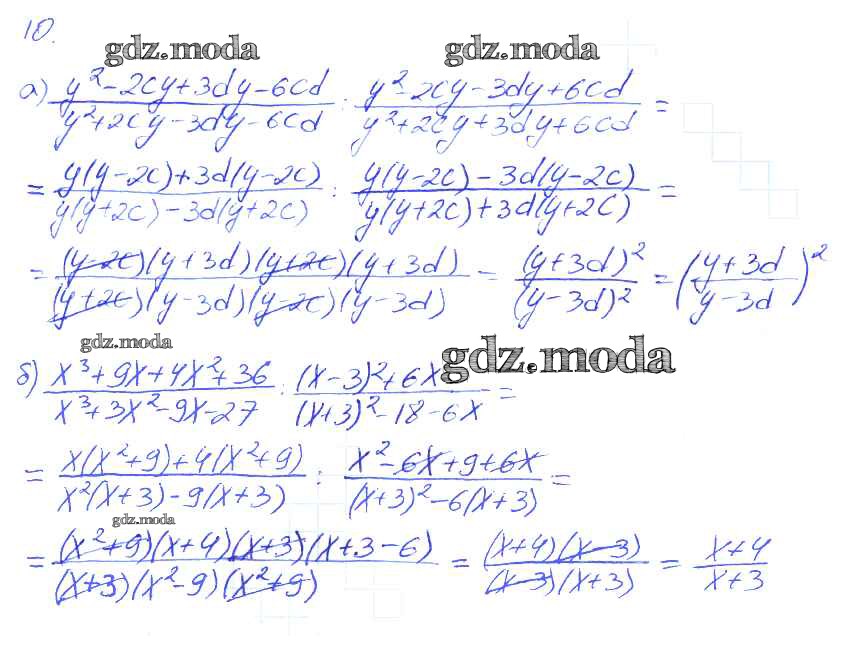 10.
gdz.moda gdz.moda
а) (y² - 2cy + 3dy - 6cd)/(y² + 2cy - 3dy - 6cd) : (y² - 2cy - 3dy + 6cd)/(y² + 2cy + 3dy + 6cd) =
= (y(y - 2c) + 3d(y - 2c))/(y(y + 2c) - 3d(y + 2c)) : (y(y - 2c) - 3d(y - 2c))/(y(y + 2c) + 3d(y + 2c)) =
= ((y - 2c)(y + 3d)(y + 2c)(y + 3d))/((y + 2c)(y - 3d)(y - 2c)(y - 3d)) = (y + 3d)²/(y - 3d)² = ((y + 3d)/(y - 3d))²
gdz.moda gdz.moda
б) (x³ + 9x + 4x² + 36)/(x³ + 3x² - 9x - 27) : ((x - 3)² + 6x)/((x + 3)² - 18 - 6x) =
= (x(x² + 9) + 4(x² + 9))/(x²(x + 3) - 9(x + 3)) : (x² - 6x + 9 + 6x)/((x + 3)² - 6(x + 3)) =
gdz.moda
= ((x² + 9)(x + 4)(x + 3)(x + 3 - 6))/((x + 3)(x² - 9)(x² + 9)) = ((x + 4)(x - 3))/((x - 3)(x + 3)) = (x + 4)/(x + 3)